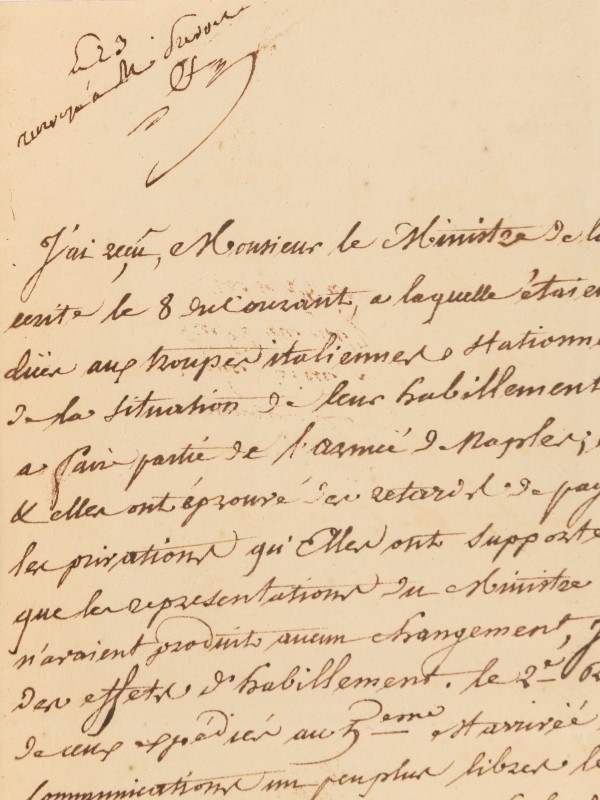 Le 23
renvoyé a Mr
J'ai reçu, Monsieur le Ministre de la
ecrite le 8 du Courant, a laquelle étaien
dües aux troupes italiennes stationné
de la situation de leur habillement
a faire partie de l'armée de Naples;
& elles ont éprouvé des retards de pay
les privations qu'Elles ont supporté
que les représentations du Ministre
n'avaient produit aucun changement, J
des effets d'habillement. le 2e
de ceux expédiés au 5eme est arrivée
Communications un peu plus libres le